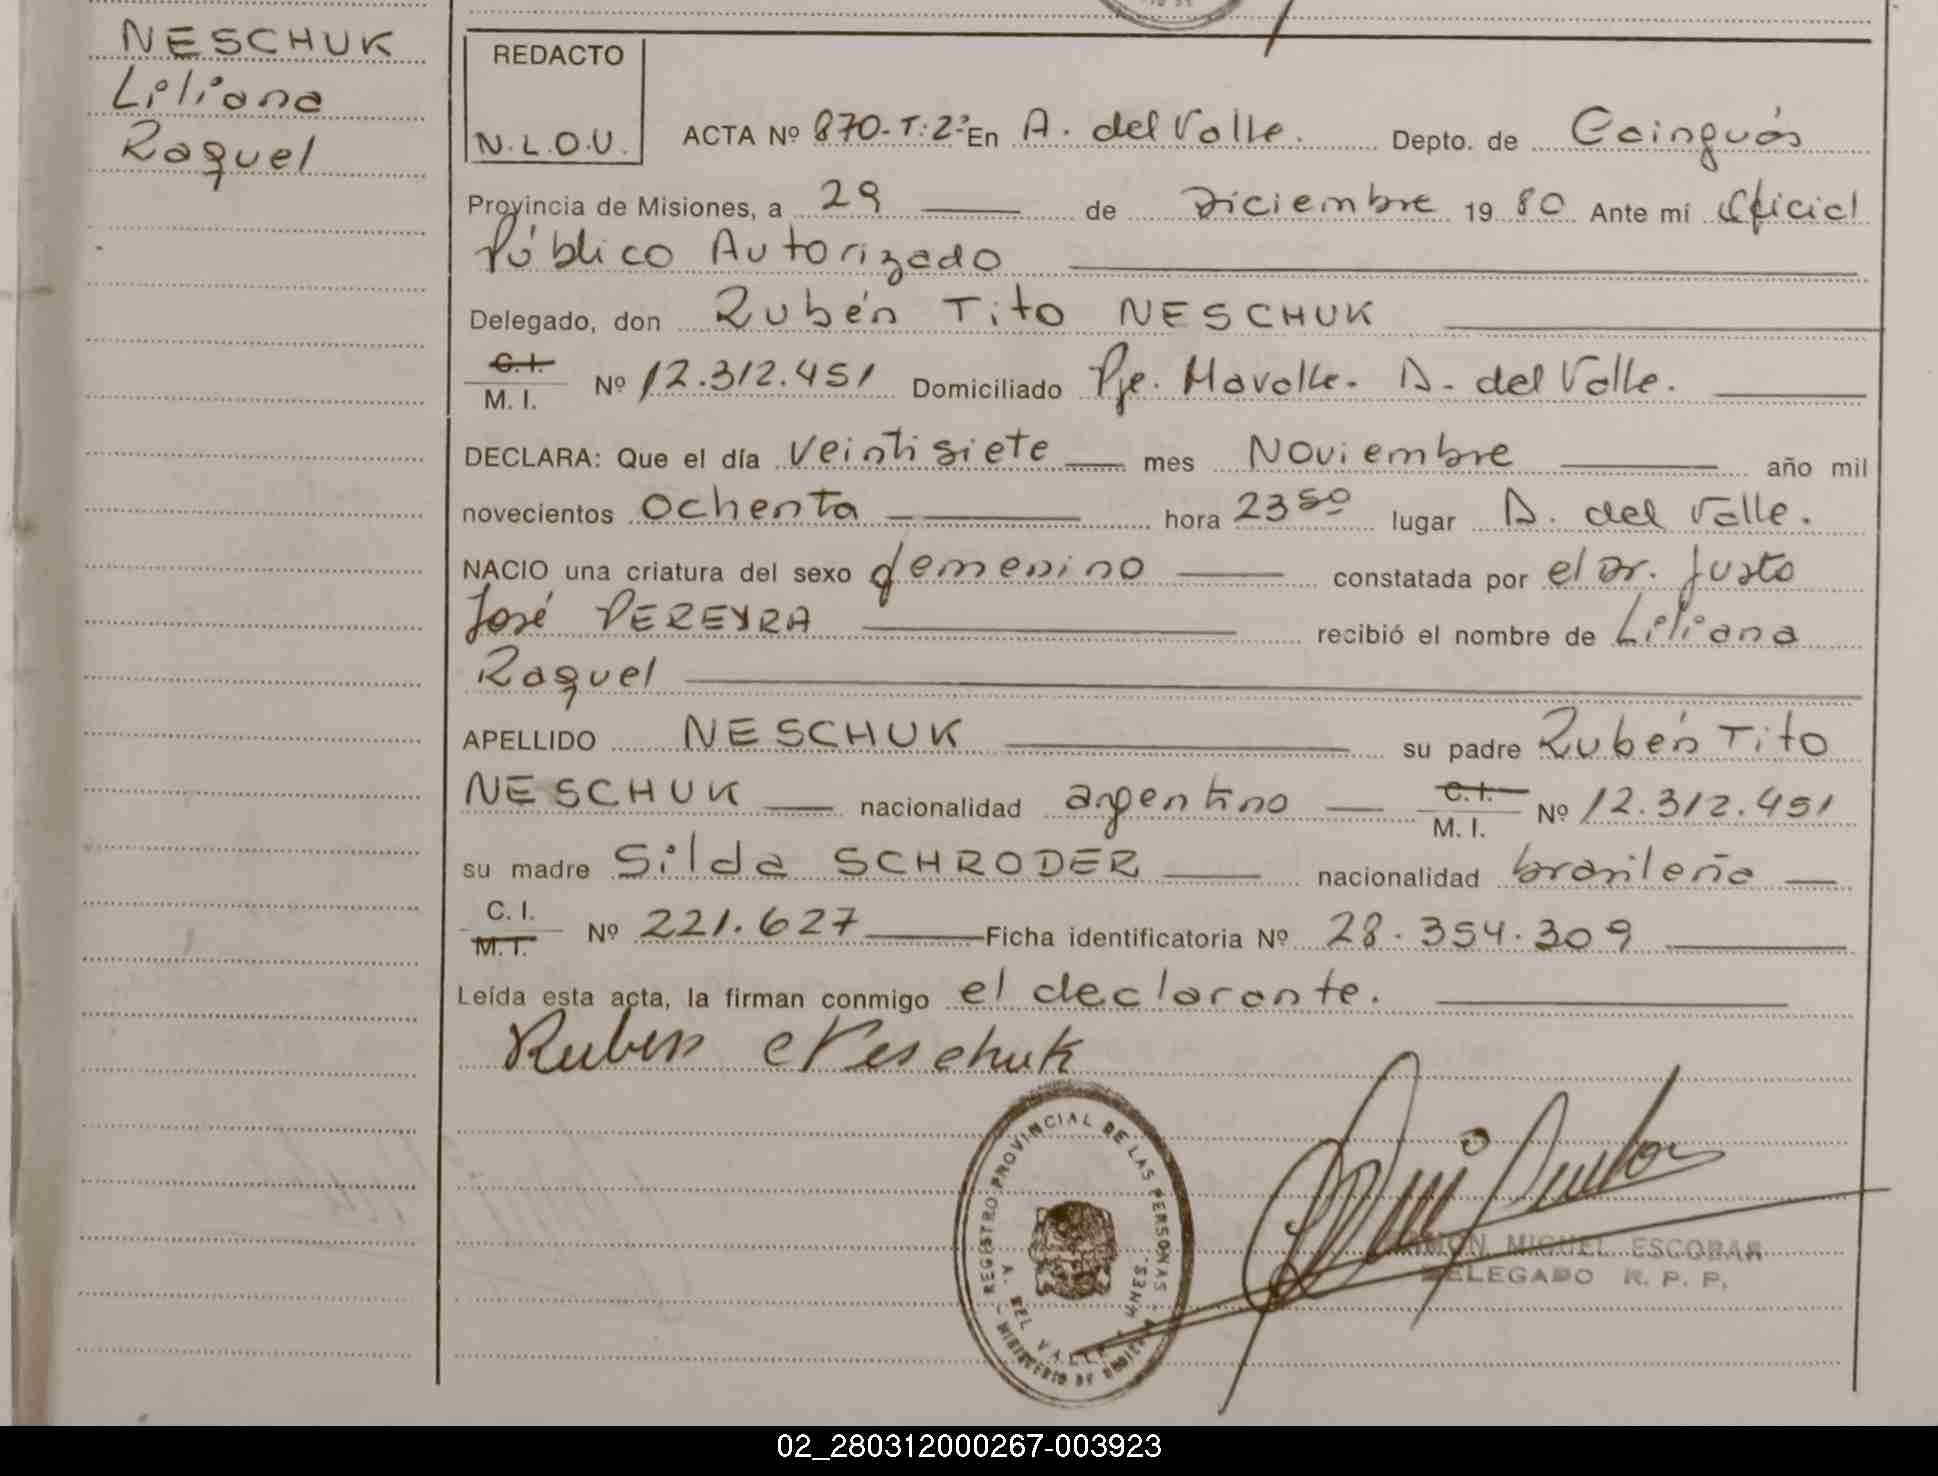 NESCHUK
Liliana
Raquel
REDACTO
N.L.O.U.
ACTA Nº 870-T:2º En A. del Valle. Depto. de Cainguás
Provincia de Misiones, a 29 de Diciembre 19 80 Ante mí Oficial
Público Autorizado
Delegado, don Rubén Tito NESCHUK
C.I.
M. I. Nº 12.312.451 Domiciliado Pje. Mavalle. A. del Valle.
DECLARA: Que el día veintisiete mes Noviembre año mil
novecientos ochenta hora 23 50 lugar A. del Valle.
NACIO una criatura del sexo femenino constatada por el Dr. Justo
José PEREYRA recibió el nombre de Liliana
Raquel
APELLIDO NESCHUK su padre Rubén Tito
NESCHUK nacionalidad argentino C.I.
M. I. Nº 12.312.451
su madre Silda SCHRODER nacionalidad brasileña
C. I.
M. I. Nº 221.627 Ficha identificatoria Nº 28.354.309
Leída esta acta, la firman conmigo el declarante.
Ruben Neschuk
REGISTRO PROVINCIAL DE LAS PERSONAS
A. DEL VALLE
MINISTERIO DE
RAMON MIGUEL ESCOBAR
DELEGADO R. P. P.
02_280312000267-003923